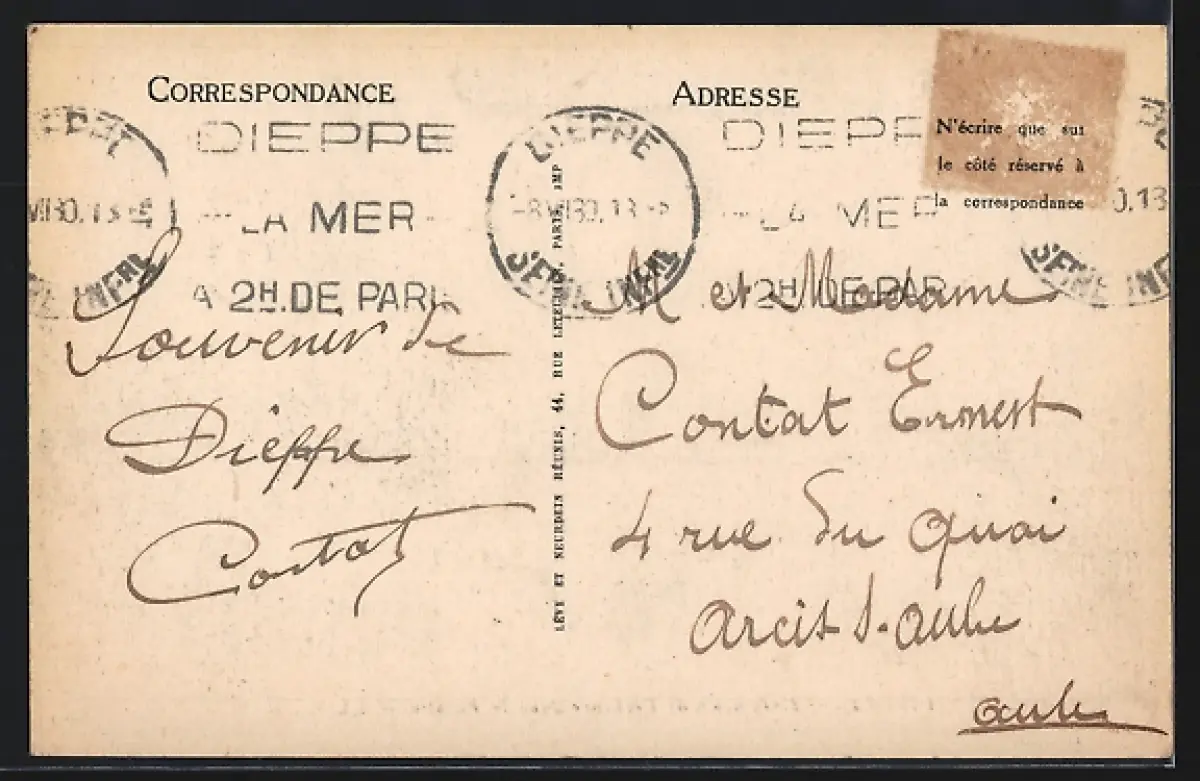 CORRESPONDANCE
ADRESSE
DIEPPE
LA MER
A 2H. DE PARI
DIEPPE
-8 VII 30. 13
SEINE INFRE
DIEPP
LA MER
2H. DE PAR
N'écrire que sur
le côté réservé à
la correspondance
Souvenir de
Dieppe
Contat
LÉVY ET NEURDEIN RÉUNIS, 44, RUE LETELLIER, PARIS, IMP
M et Madame
Contat Ernest
4 rue du Quai
Arcis s. aube
aube